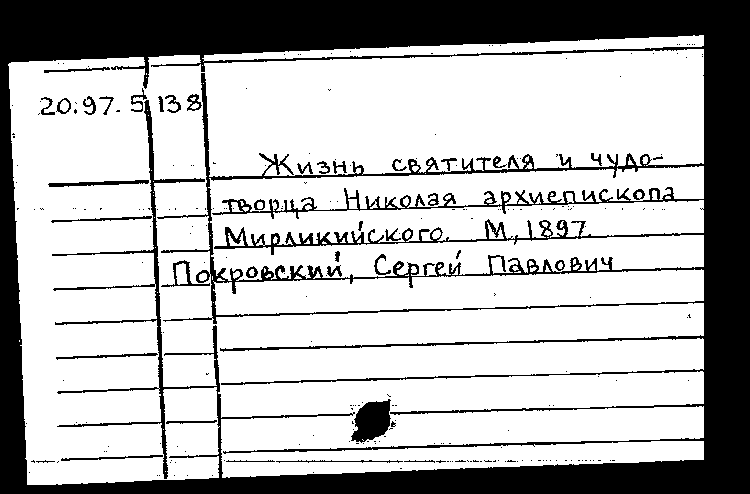 20.97.5 138
Жизнь святителя и чудо-
творца Николая архиепископа
Мирликийского. М, 1897.
Покровский, Сергей Павлович